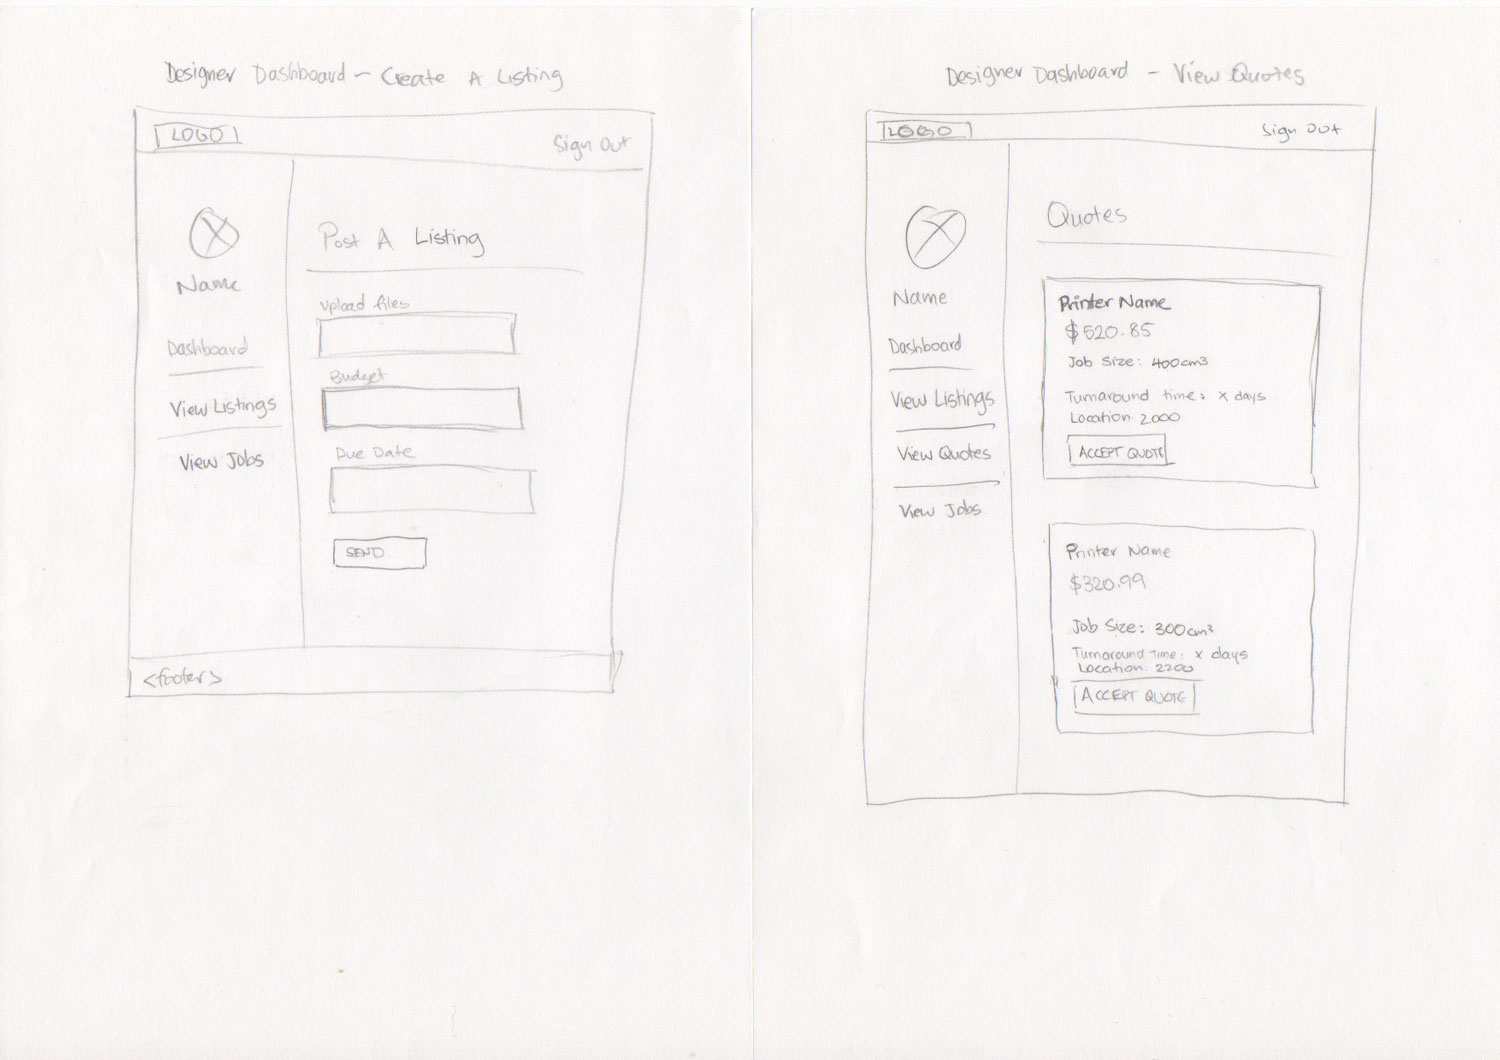 Designer Dashboard - Create A Listing
LOGO
Sign Out
Name
Dashboard
View Listings
View Jobs
Post A Listing
Upload files
Budget
Due Date
SEND
<footer>
Designer Dashboard - View Quotes
LOGO
Sign Out
Name
Dashboard
View Listings
View Quotes
View Jobs
Quotes
Printer Name
$520.85
Job Size: 400cm³
Turnaround time: x days
Location 2000
ACCEPT QUOTE
Printer Name
$320.99
Job Size: 300cm³
Turnaround Time: x days
Location: 2200
ACCEPT QUOTE